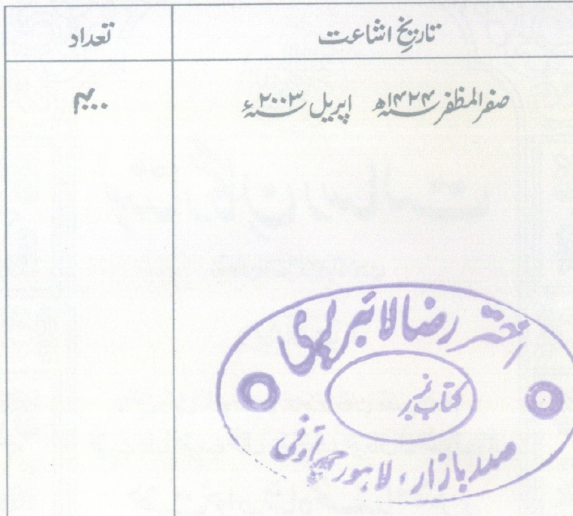 تاریخِ اشاعت	تعداد
صفرالمظفر ۱۴۲۴ھ اپریل ۲۰۰۳ء	۴۰۰۰
اختر رضا لائبریری
کتاب نمبر
صدر بازار، لاہور چھاؤنی